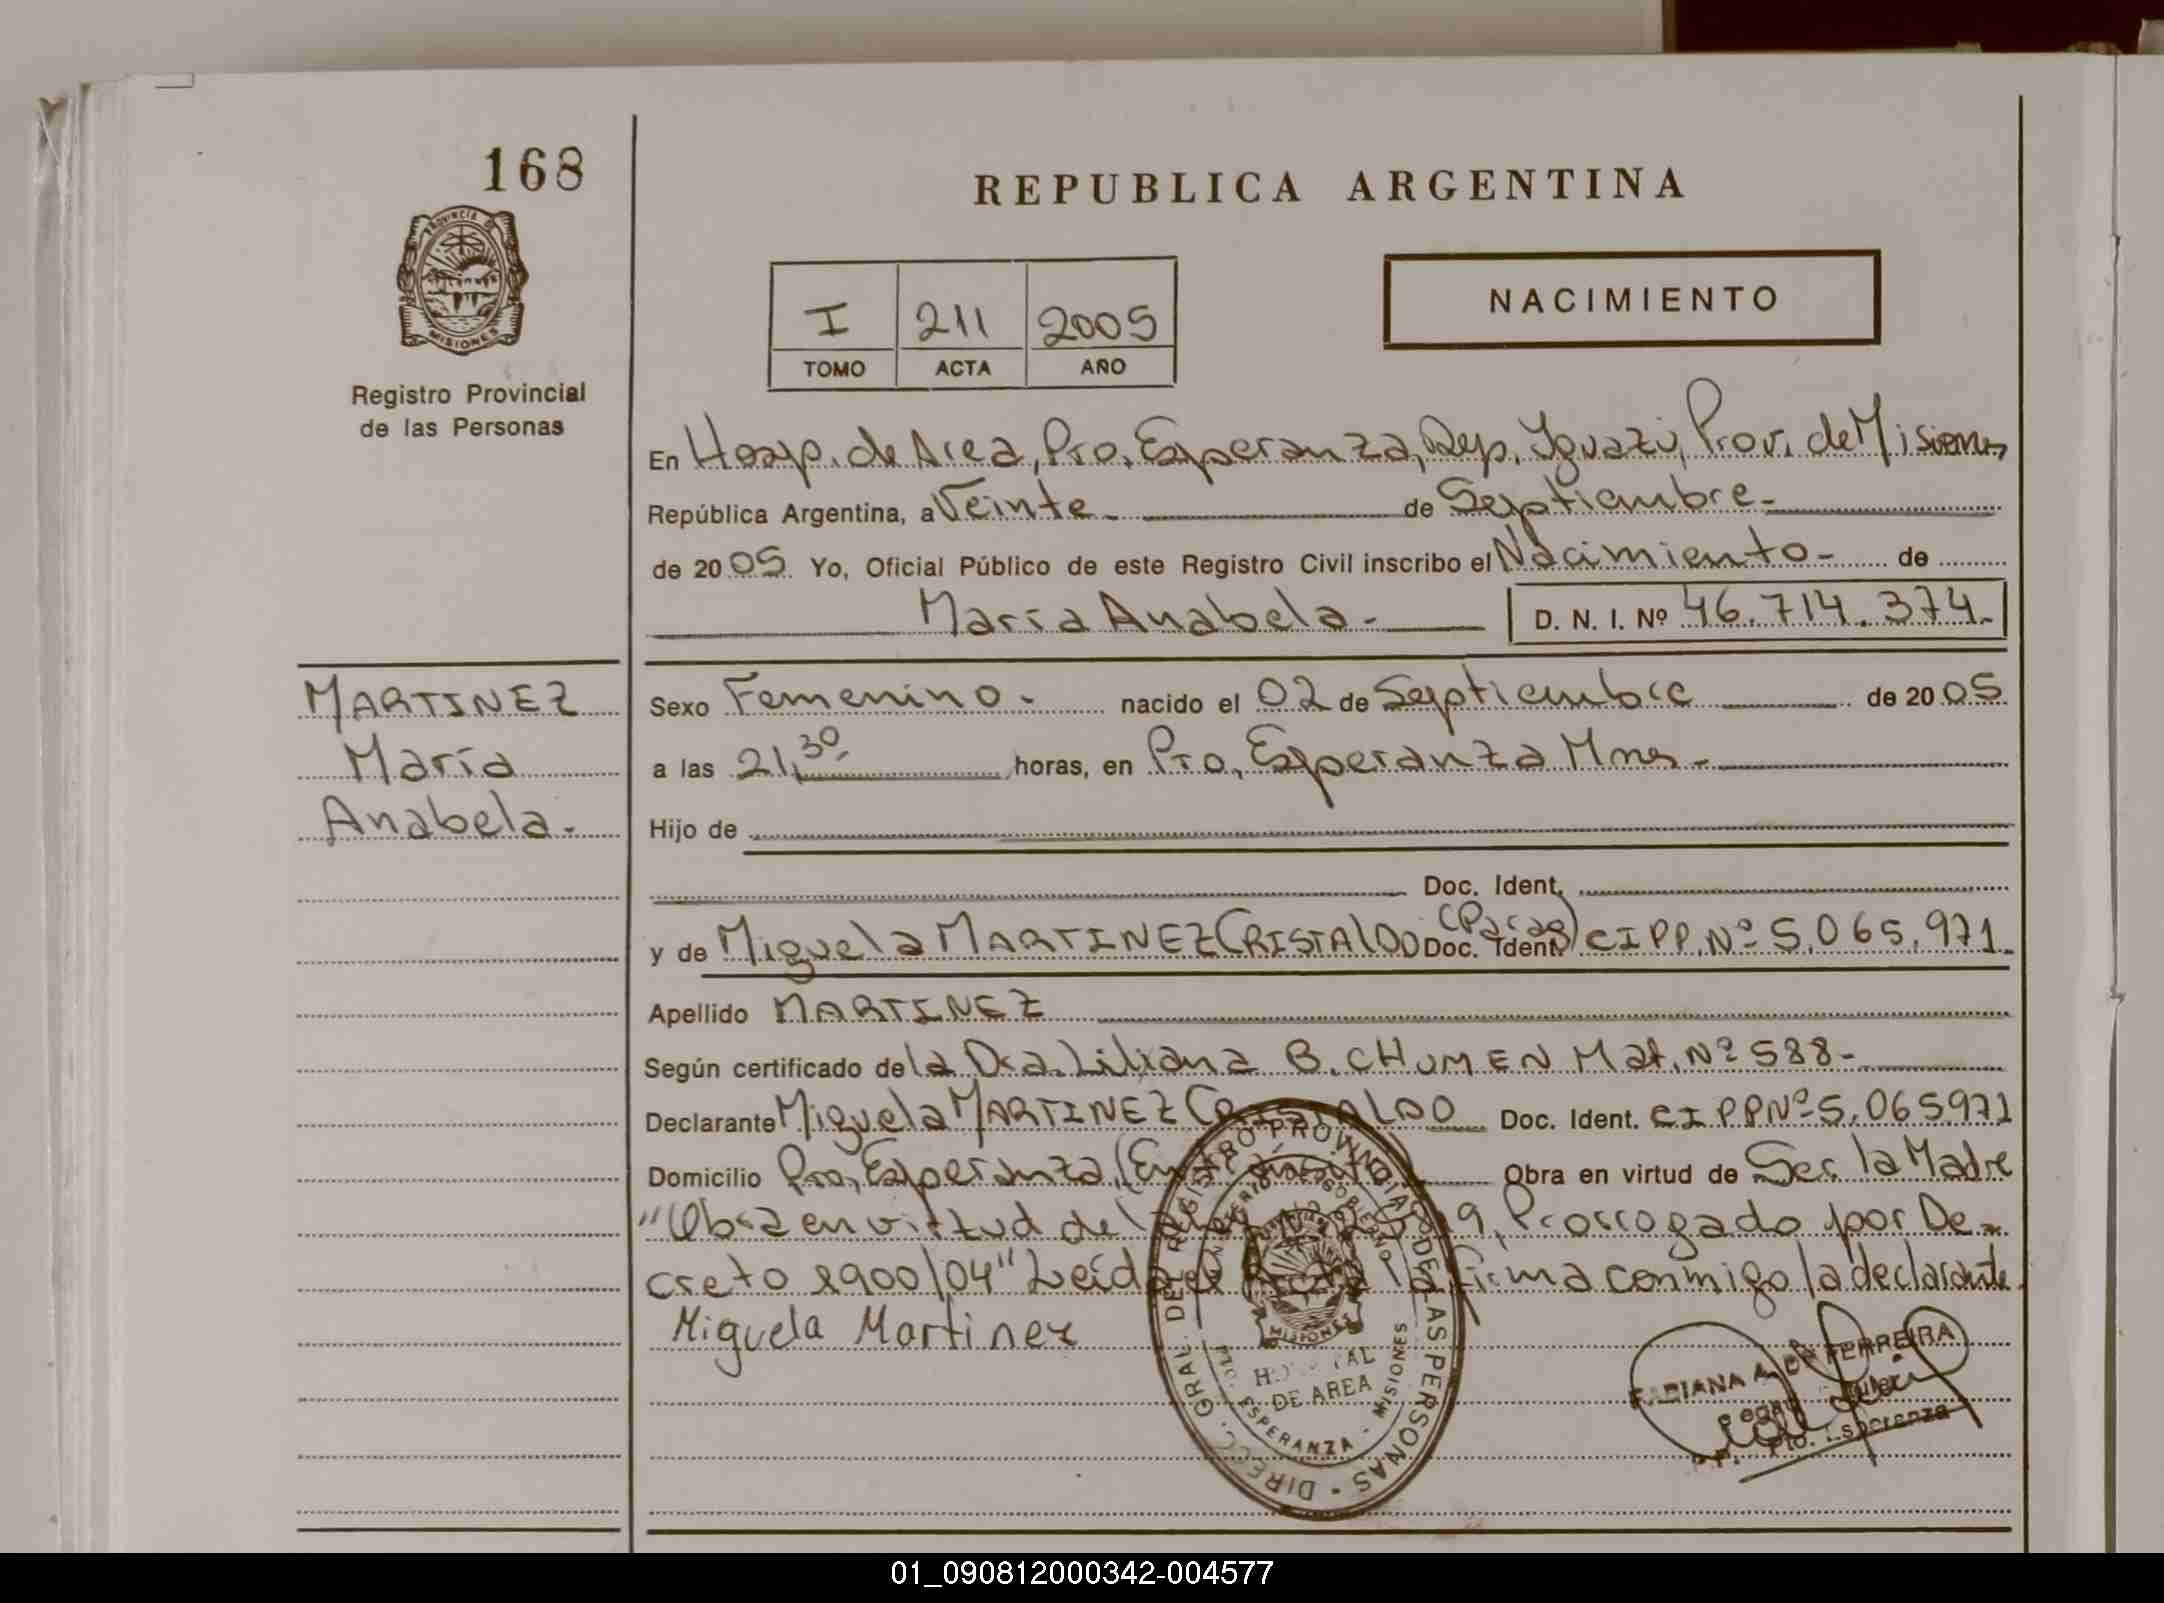 168
REPUBLICA ARGENTINA
PROVINCIA DE
MISIONES
Registro Provincial
de las Personas
I 211 2005
TOMO ACTA AÑO
NACIMIENTO
En Hosp. de Area, Pto. Esperanza, Dep. Iguazú, Prov. de Misiones
República Argentina, a Veinte de Septiembre
de 2005 Yo, Oficial Público de este Registro Civil inscribo el Nacimiento de
María Anabela D. N. I. Nº 46.714.374
MARTINEZ
María
Anabela
Sexo Femenino nacido el 02 de Septiembre de 2005
a las 21,30 horas, en Pto. Esperanza Mnes
Hijo de
Doc. Ident.
y de Miguela MARTINEZ CRISTALDO (Parag) Doc. Ident. CIPP. Nº 5.065.971
Apellido MARTINEZ
Según certificado de la Dra. Liliana B. CHUMEN Mat. Nº 588
Declarante Miguela MARTINEZ CRISTALDO Doc. Ident. CIPP Nº 5.065971
Domicilio Pto. Esperanza Obra en virtud de Ser la Madre
"Obra en virtud de Prorrogado por De
creto 1900/04" Leída la firma conmigo la declarante
Miguela Martinez
DIRECC. GRAL. DEL REGISTRO PROVINCIAL DE LAS PERSONAS
MISIONES
HOSPITAL
DE AREA
ESPERANZA - MISIONES
FABIANA A. DE FERREIRA
Pto. Esperanza
01_090812000342-004577